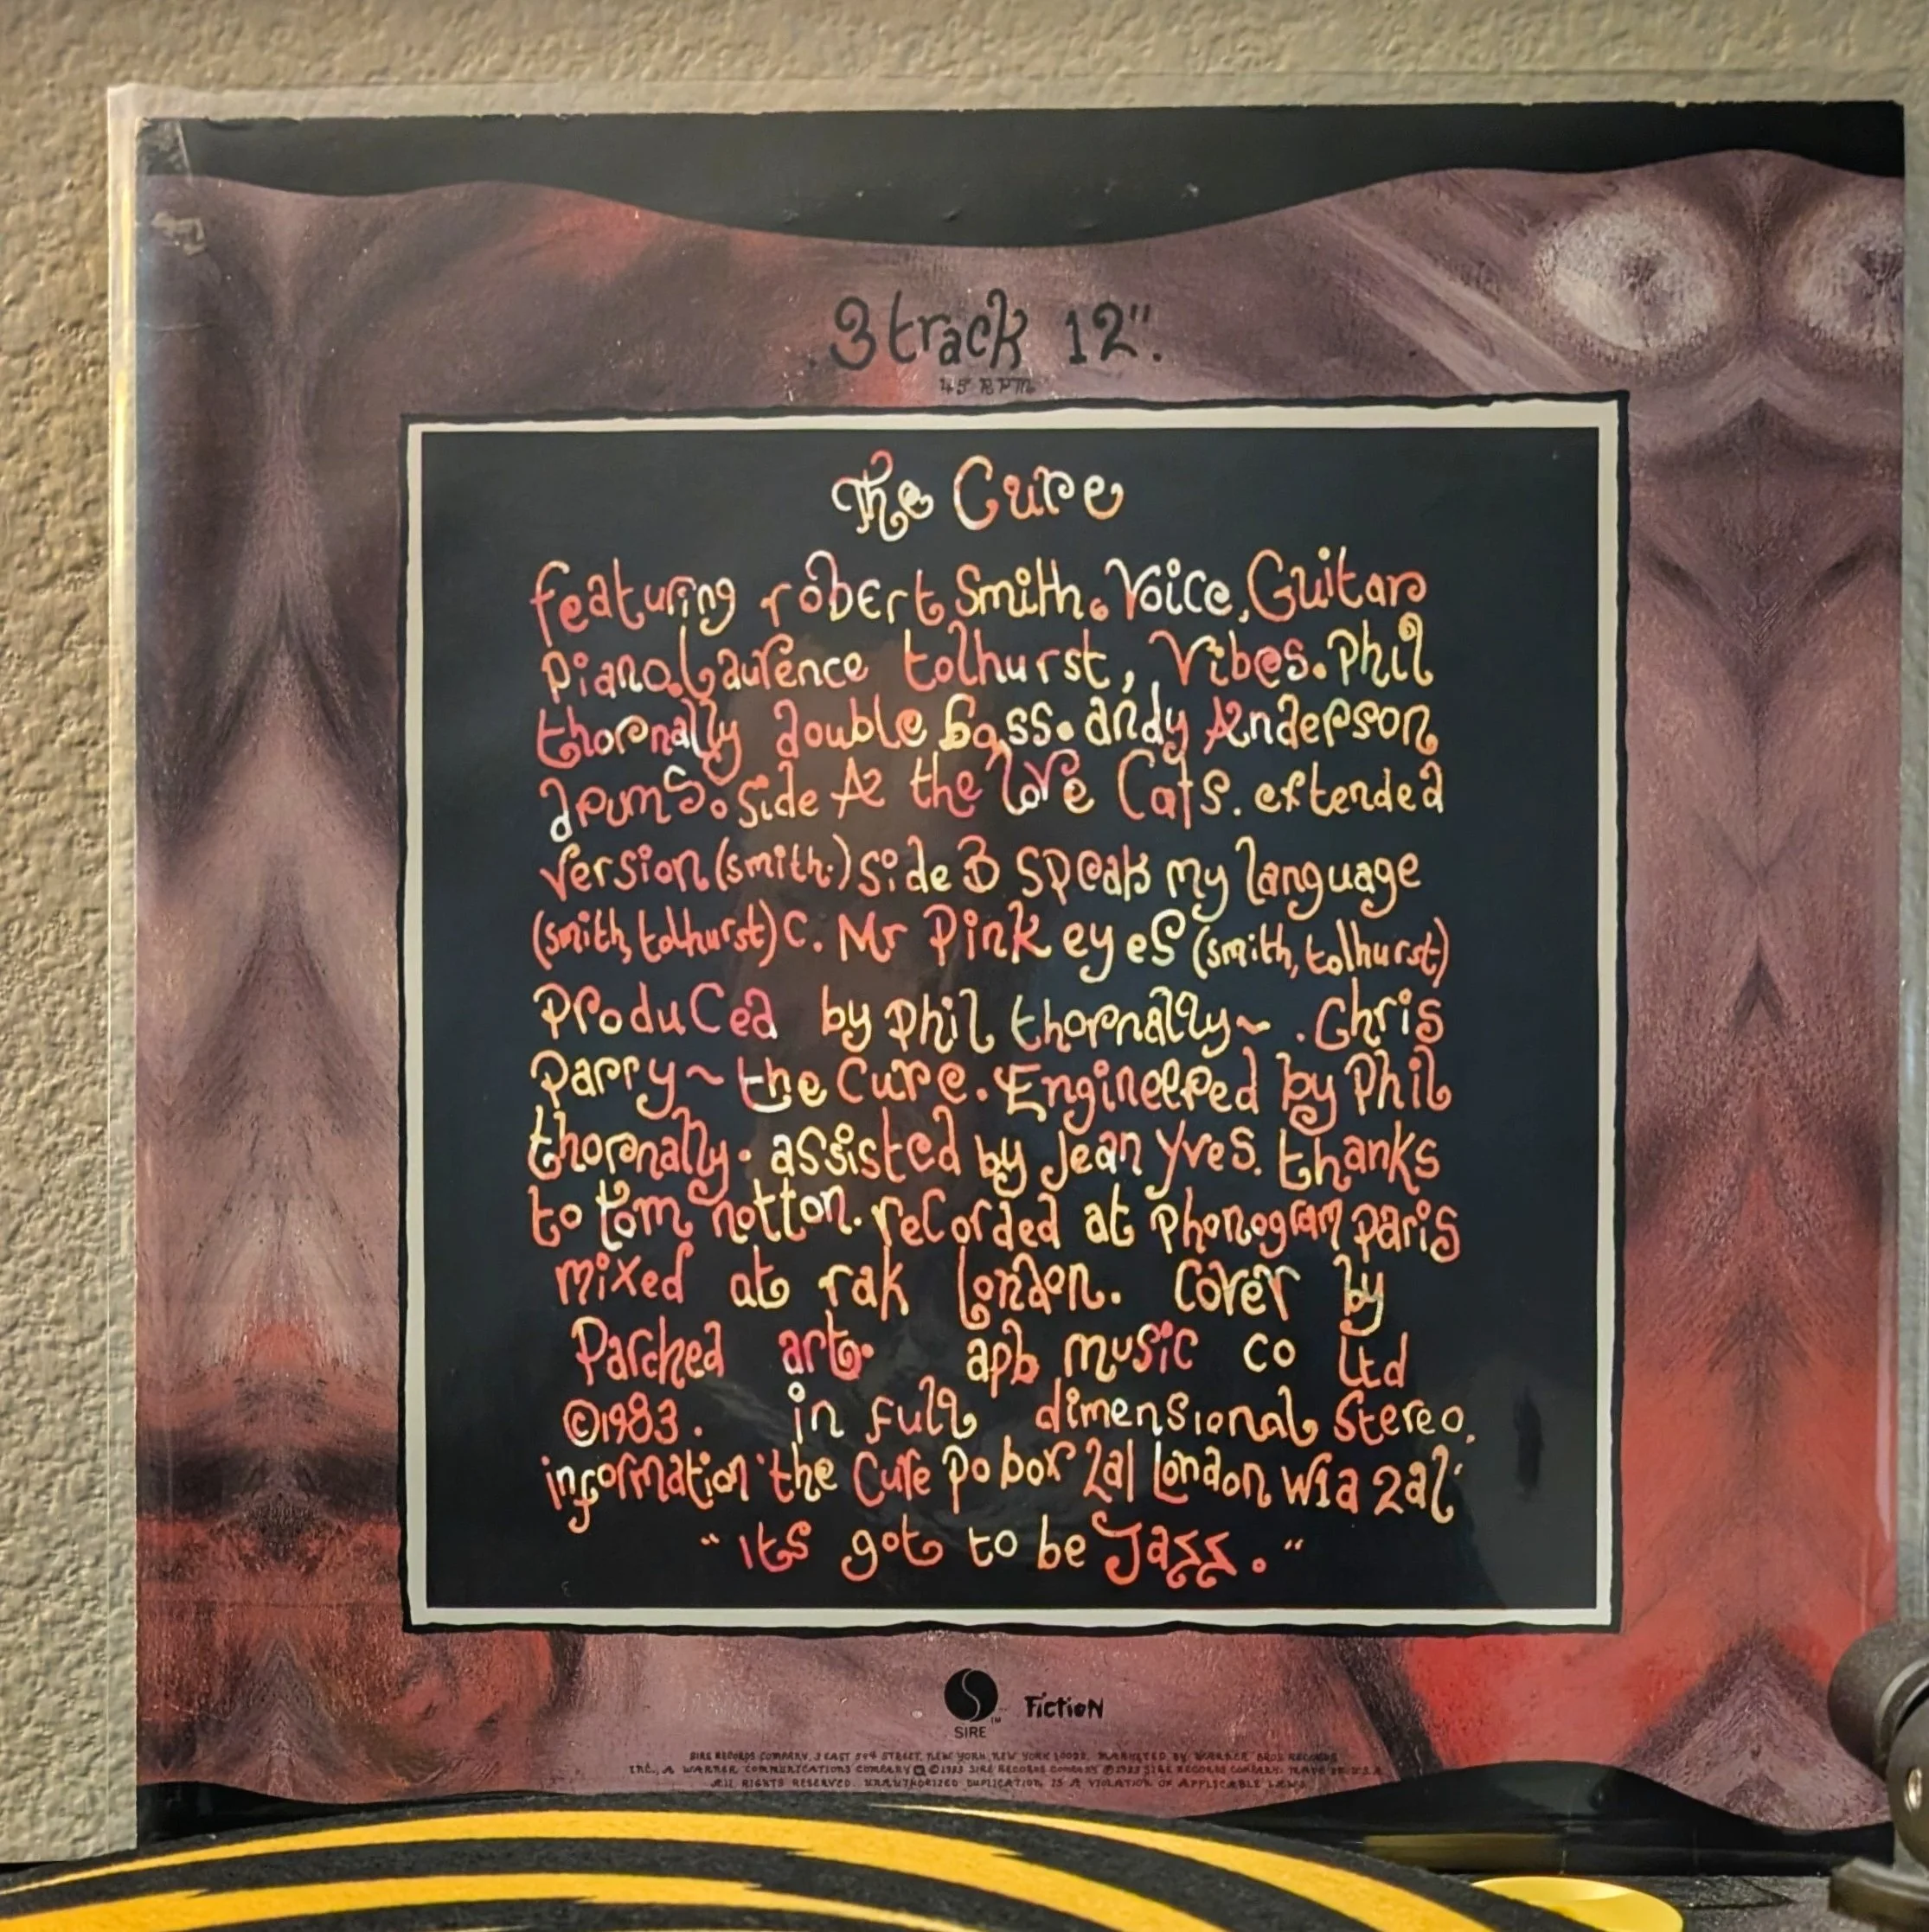 .3 track 12".
45 RPM
The Cure
featuring robert Smith. Voice, Guitar
piano. Laurence tolhurst, Vibes. Phil
thornally double bass. andy Anderson
drums. Side A2 the love Cats. extended
version (smith.) side B speak my language
(smith, tolhurst) C. Mr Pink eyes (smith, tolhurst)
Produced by phil thornally~ . Chris
Parry ~ the Cure. Engineered by Phil
thornally. assisted by Jean Yves. thanks
to tom notton. recorded at phonogram paris
mixed at rak london. Cover by
Parched art. apb music co Ltd
©1983. in full dimensional Stereo.
information 'the Cure po box 2al london w1a 2al'
"its got to be Jazz."
SIRE
TM
Fiction
SIRE RECORDS COMPANY, 3 EAST 54th STREET, NEW YORK, NEW YORK 10022. MARKETED BY WARNER BROS RECORDS
INC., A WARNER COMMUNICATIONS COMPANY ℗ ©1983 SIRE RECORDS COMPANY ℗1983 SIRE RECORDS COMPANY. MADE IN U.S.A.
ALL RIGHTS RESERVED. UNAUTHORIZED DUPLICATION IS A VIOLATION OF APPLICABLE LAWS.